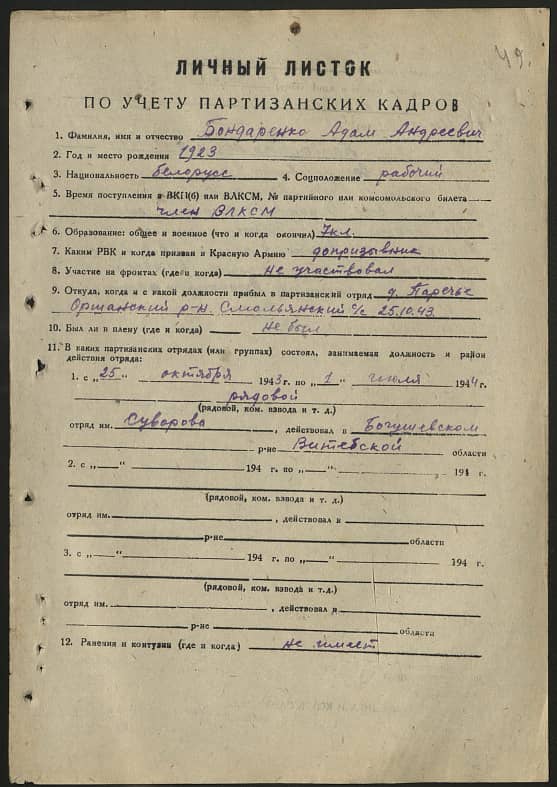 49.
ЛИЧНЫЙ ЛИСТОК
ПО УЧЕТУ ПАРТИЗАНСКИХ КАДРОВ
1. Фамилия, имя и отчество Бондаренко Адам Андреевич
2. Год и место рождения 1923
3. Национальность белорусс 4. Соцположение рабочий
5. Время поступления в ВКП(б) или ВЛКСМ, № партийного или комсомольского билета
член ВЛКСМ
6. Образование: общее и военное (что и когда окончил) 7кл.
7. Каким РВК и когда призван в Красную Армию допризывник
8. Участие на фронтах (где и когда) не участвовал
9. Откуда, когда и с какой должности прибыл в партизанский отряд д. Паречье
Оршанский р-н. Смольянский с/с 25.10.43.
10. Был ли в плену (где и когда) не был
11. В каких партизанских отрядах (или группах) состоял, занимаемая должность и район
действия отряда:
1. с „25" октября 1943г. по „1" июля 1944г.
рядовой
(рядовой, ком. взвода и т. д.)
отряд им. Суворова, действовал в Богушевском
р-не Витебской области
2. с „ " 194 г. по „ " 194 г.
(рядовой, ком. взвода и т. д.)
отряд им. , действовал в
р-не области
3. с „ " 194 г. по „ " 194 г.
(рядовой, ком. взвода и т. д.)
отряд им. , действовал в
р-не области
12. Ранения и контузии (где и когда) не имеет